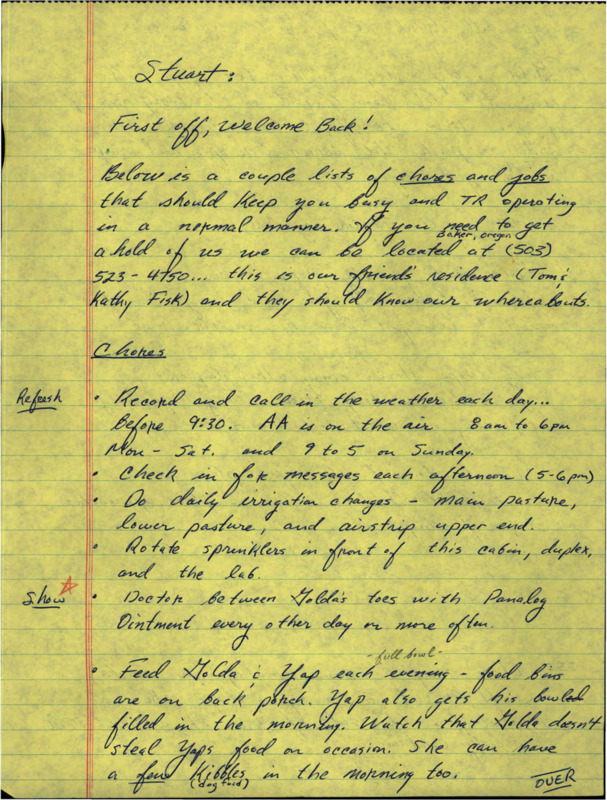 Stuart:
First off, Welcome Back!
Below is a couple lists of chores and jobs
that should keep you busy and TR operating
in a normal manner. If you need to get
Baker, Oregon
ahold of us we can be located at (503)
523-4750... this is our friend's residence (Tom &
Kathy Fisk) and they should know our whereabouts.
Chores
Refresh • Record and call in the weather each day...
before 9:30. AA is on the air 8am to 6pm
Mon - Sat. and 9 to 5 on Sunday.
• Check in for messages each afternoon (5-6pm)
• Do daily irrigation changes - main pasture,
lower pasture, and airstrip upper end.
• Rotate sprinklers in front of this cabin, duplex,
and the lab.
Show ☆ • Doctor between Golda's toes with Panalog
Ointment every other day or more often.
- full bowl -
• Feed Golda & Yap each evening - food bins
are on back porch. Yap also gets his bowl
filled in the morning. Watch that Golda doesn't
steal Yaps food on occasion. She can have
a few Kibbles in the morning too.
(dog food)
OVER